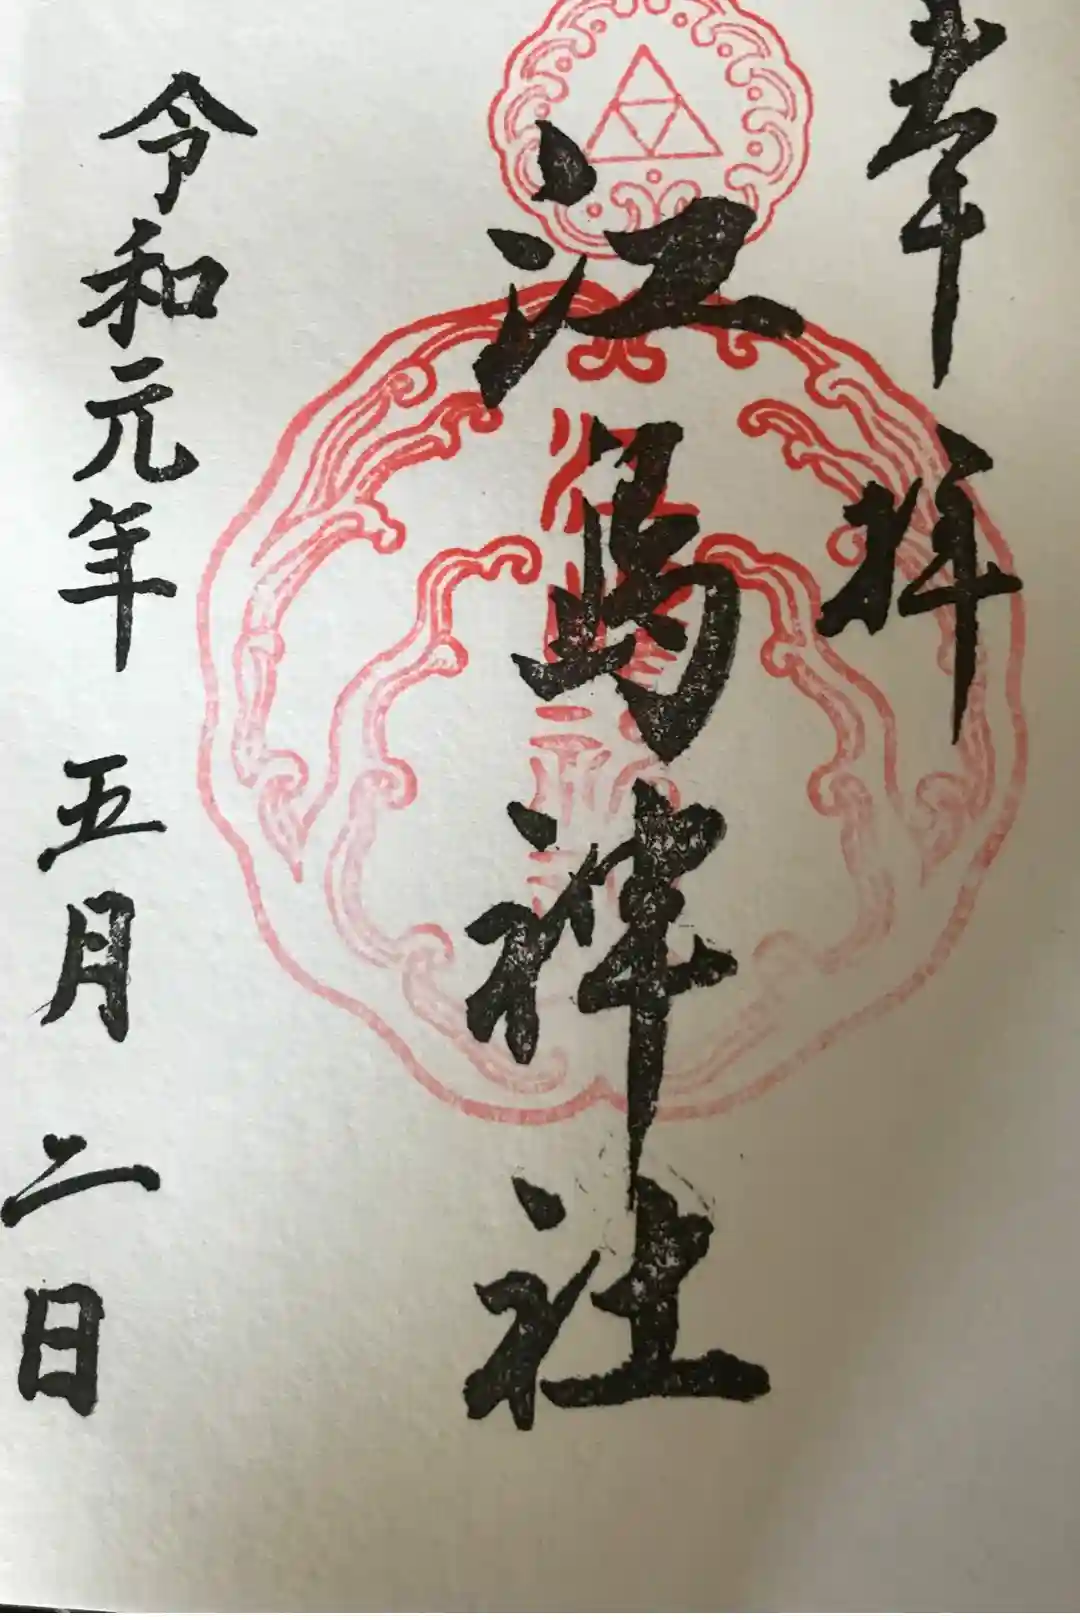 奉拝
江島神社
令和元年 五月 二日